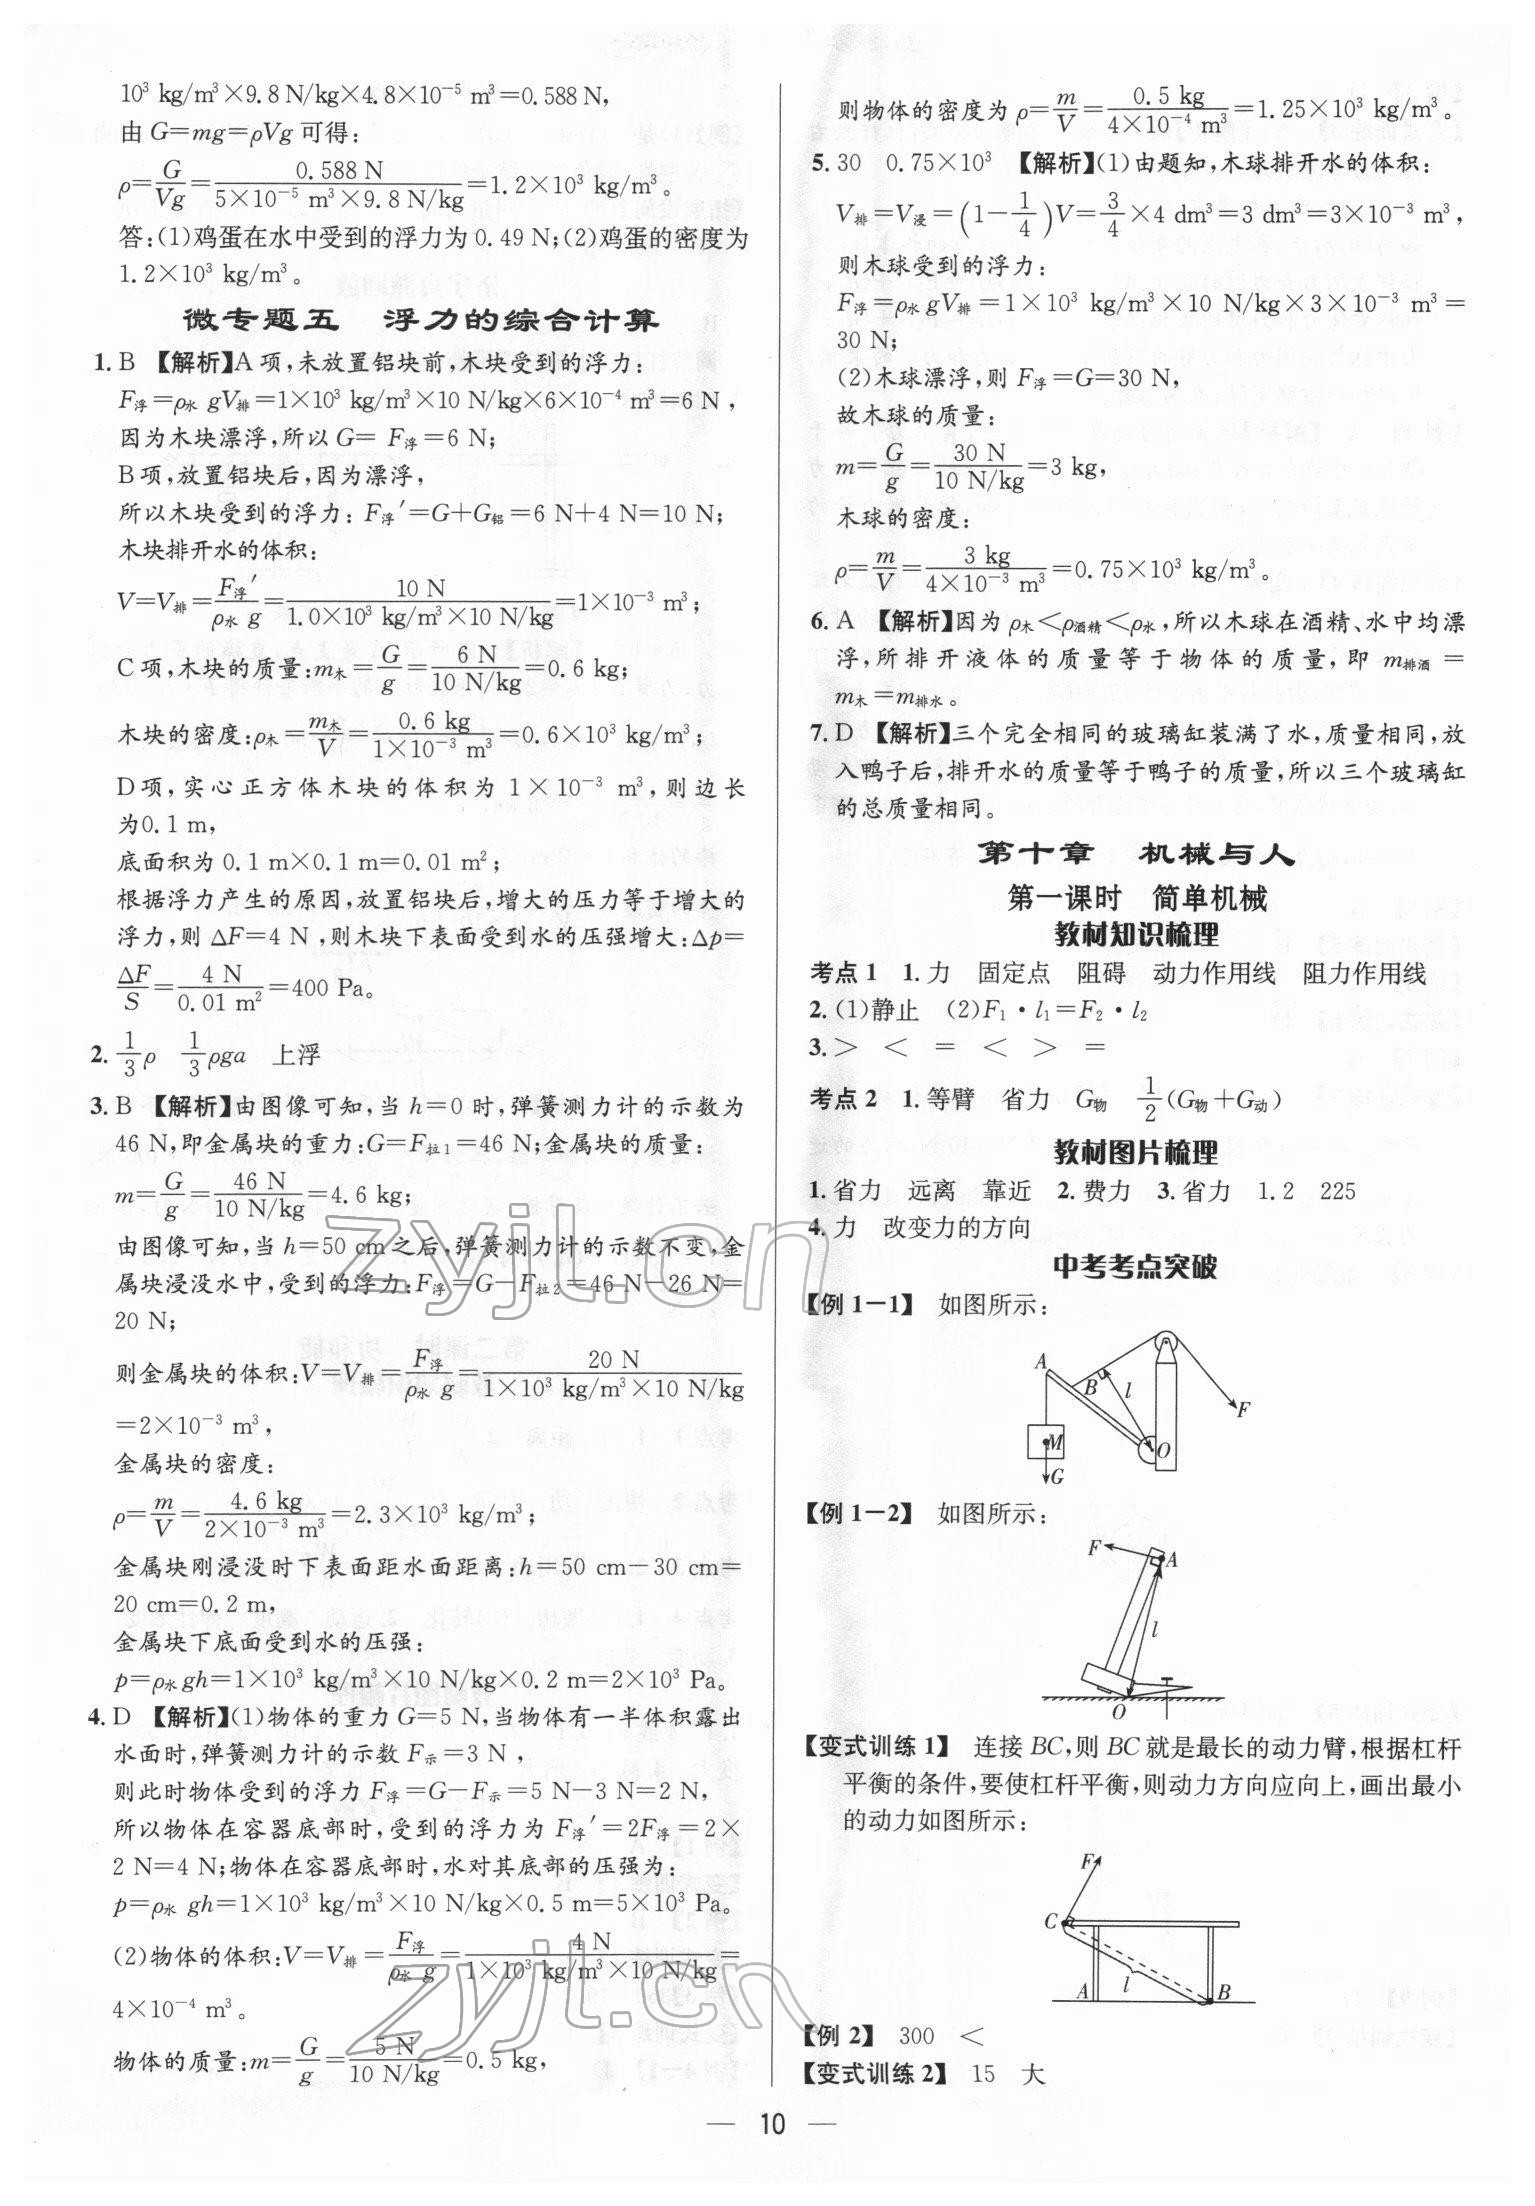 10³ kg/m³×9.8 N/kg×4.8×10⁻⁵ m³=0.588 N,
由 G=mg=ρVg 可得:
ρ=G/Vg=0.588 N/(5×10⁻⁵ m³×9.8 N/kg)=1.2×10³ kg/m³。
答:(1)鸡蛋在水中受到的浮力为 0.49 N;(2)鸡蛋的密度为
1.2×10³ kg/m³。
微专题五 浮力的综合计算
1. B 【解析】A 项,未放置铝块前,木块受到的浮力:
F浮=ρ水 gV排=1×10³ kg/m³×10 N/kg×6×10⁻⁴ m³=6 N,
因为木块漂浮,所以 G= F浮=6 N;
B 项,放置铝块后,因为漂浮,
所以木块受到的浮力: F浮′=G+G铝=6 N+4 N=10 N;
木块排开水的体积:
V=V排=F浮′/(ρ水 g)=10 N/(1.0×10³ kg/m³×10 N/kg)=1×10⁻³ m³;
C 项,木块的质量:m木=G/g=6 N/(10 N/kg)=0.6 kg;
木块的密度:ρ木=m木/V=0.6 kg/(1×10⁻³ m³)=0.6×10³ kg/m³;
D 项,实心正方体木块的体积为 1×10⁻³ m³,则边长
为0.1 m,
底面积为 0.1 m×0.1 m=0.01 m²;
根据浮力产生的原因,放置铝块后,增大的压力等于增大的
浮力,则 ΔF=4 N,则木块下表面受到水的压强增大:Δp=
ΔF/S=4 N/(0.01 m²)=400 Pa。
2. 1/3ρ 1/3ρga 上浮
3. B 【解析】由图像可知,当 h=0 时,弹簧测力计的示数为
46 N,即金属块的重力:G=F拉1=46 N;金属块的质量:
m=G/g=46 N/(10 N/kg)=4.6 kg;
由图像可知,当 h=50 cm之后,弹簧测力计的示数不变,金
属块浸没水中,受到的浮力:F浮=G-F拉2=46 N-26 N=
20 N;
则金属块的体积:V=V排=F浮/(ρ水 g)=20 N/(1×10³ kg/m³×10 N/kg)
=2×10⁻³ m³,
金属块的密度:
ρ=m/V=4.6 kg/(2×10⁻³ m³)=2.3×10³ kg/m³;
金属块刚浸没时下表面距水面距离:h=50 cm-30 cm=
20 cm=0.2 m,
金属块下底面受到水的压强:
p=ρ水 gh=1×10³ kg/m³×10 N/kg×0.2 m=2×10³ Pa。
4. D 【解析】(1)物体的重力 G=5 N,当物体有一半体积露出
水面时,弹簧测力计的示数 F示=3 N,
则此时物体受到的浮力 F浮=G-F示=5 N-3 N=2 N,
所以物体在容器底部时,受到的浮力为 F浮′=2F浮=2×
2 N=4 N;物体在容器底部时,水对其底部的压强为:
p=ρ水 gh=1×10³ kg/m³×10 N/kg×0.5 m=5×10³ Pa。
(2)物体的体积:V=V排=F浮/(ρ水 g)=4 N/(1×10³ kg/m³×10 N/kg)=
4×10⁻⁴ m³。
物体的质量:m=G/g=5 N/(10 N/kg)=0.5 kg,
则物体的密度为 ρ=m/V=0.5 kg/(4×10⁻⁴ m³)=1.25×10³ kg/m³。
5. 30 0.75×10³ 【解析】(1)由题知,木球排开水的体积:
V排=V浸=(1-1/4)V=3/4×4 dm³=3 dm³=3×10⁻³ m³,
则木球受到的浮力:
F浮=ρ水 gV排=1×10³ kg/m³×10 N/kg×3×10⁻³ m³=
30 N;
(2)木球漂浮,则 F浮=G=30 N,
故木球的质量:
m=G/g=30 N/(10 N/kg)=3 kg,
木球的密度:
ρ=m/V=3 kg/(4×10⁻³ m³)=0.75×10³ kg/m³。
6. A 【解析】因为 ρ木<ρ酒精<ρ水,所以木球在酒精、水中均漂
浮,所排开液体的质量等于物体的质量,即 m排酒=
m木=m排水。
7. D 【解析】三个完全相同的玻璃缸装满了水,质量相同,放
入鸭子后,排开水的质量等于鸭子的质量,所以三个玻璃缸
的总质量相同。
第十章 机械与人
第一课时 简单机械
教材知识梳理
考点 1 1. 力 固定点 阻碍 动力作用线 阻力作用线
2. (1)静止 (2)F₁·l₁=F₂·l₂
3. > < = < > =
考点 2 1. 等臂 省力 G物 1/2(G物+G动)
教材图片梳理
1. 省力 远离 靠近 2. 费力 3. 省力 1.2 225
4. 力 改变力的方向
中考考点突破
【例 1-1】 如图所示:
A
B
l
F
M
O
G
【例 1-2】 如图所示:
F
A
l
O
【变式训练 1】 连接 BC,则 BC 就是最长的动力臂,根据杠杆
平衡的条件,要使杠杆平衡,则动力方向应向上,画出最小
的动力如图所示:
F
C
A
l
B
【例 2】 300 <
【变式训练 2】 15 大
— 10 —
zyjl.cn
zyjl.cn